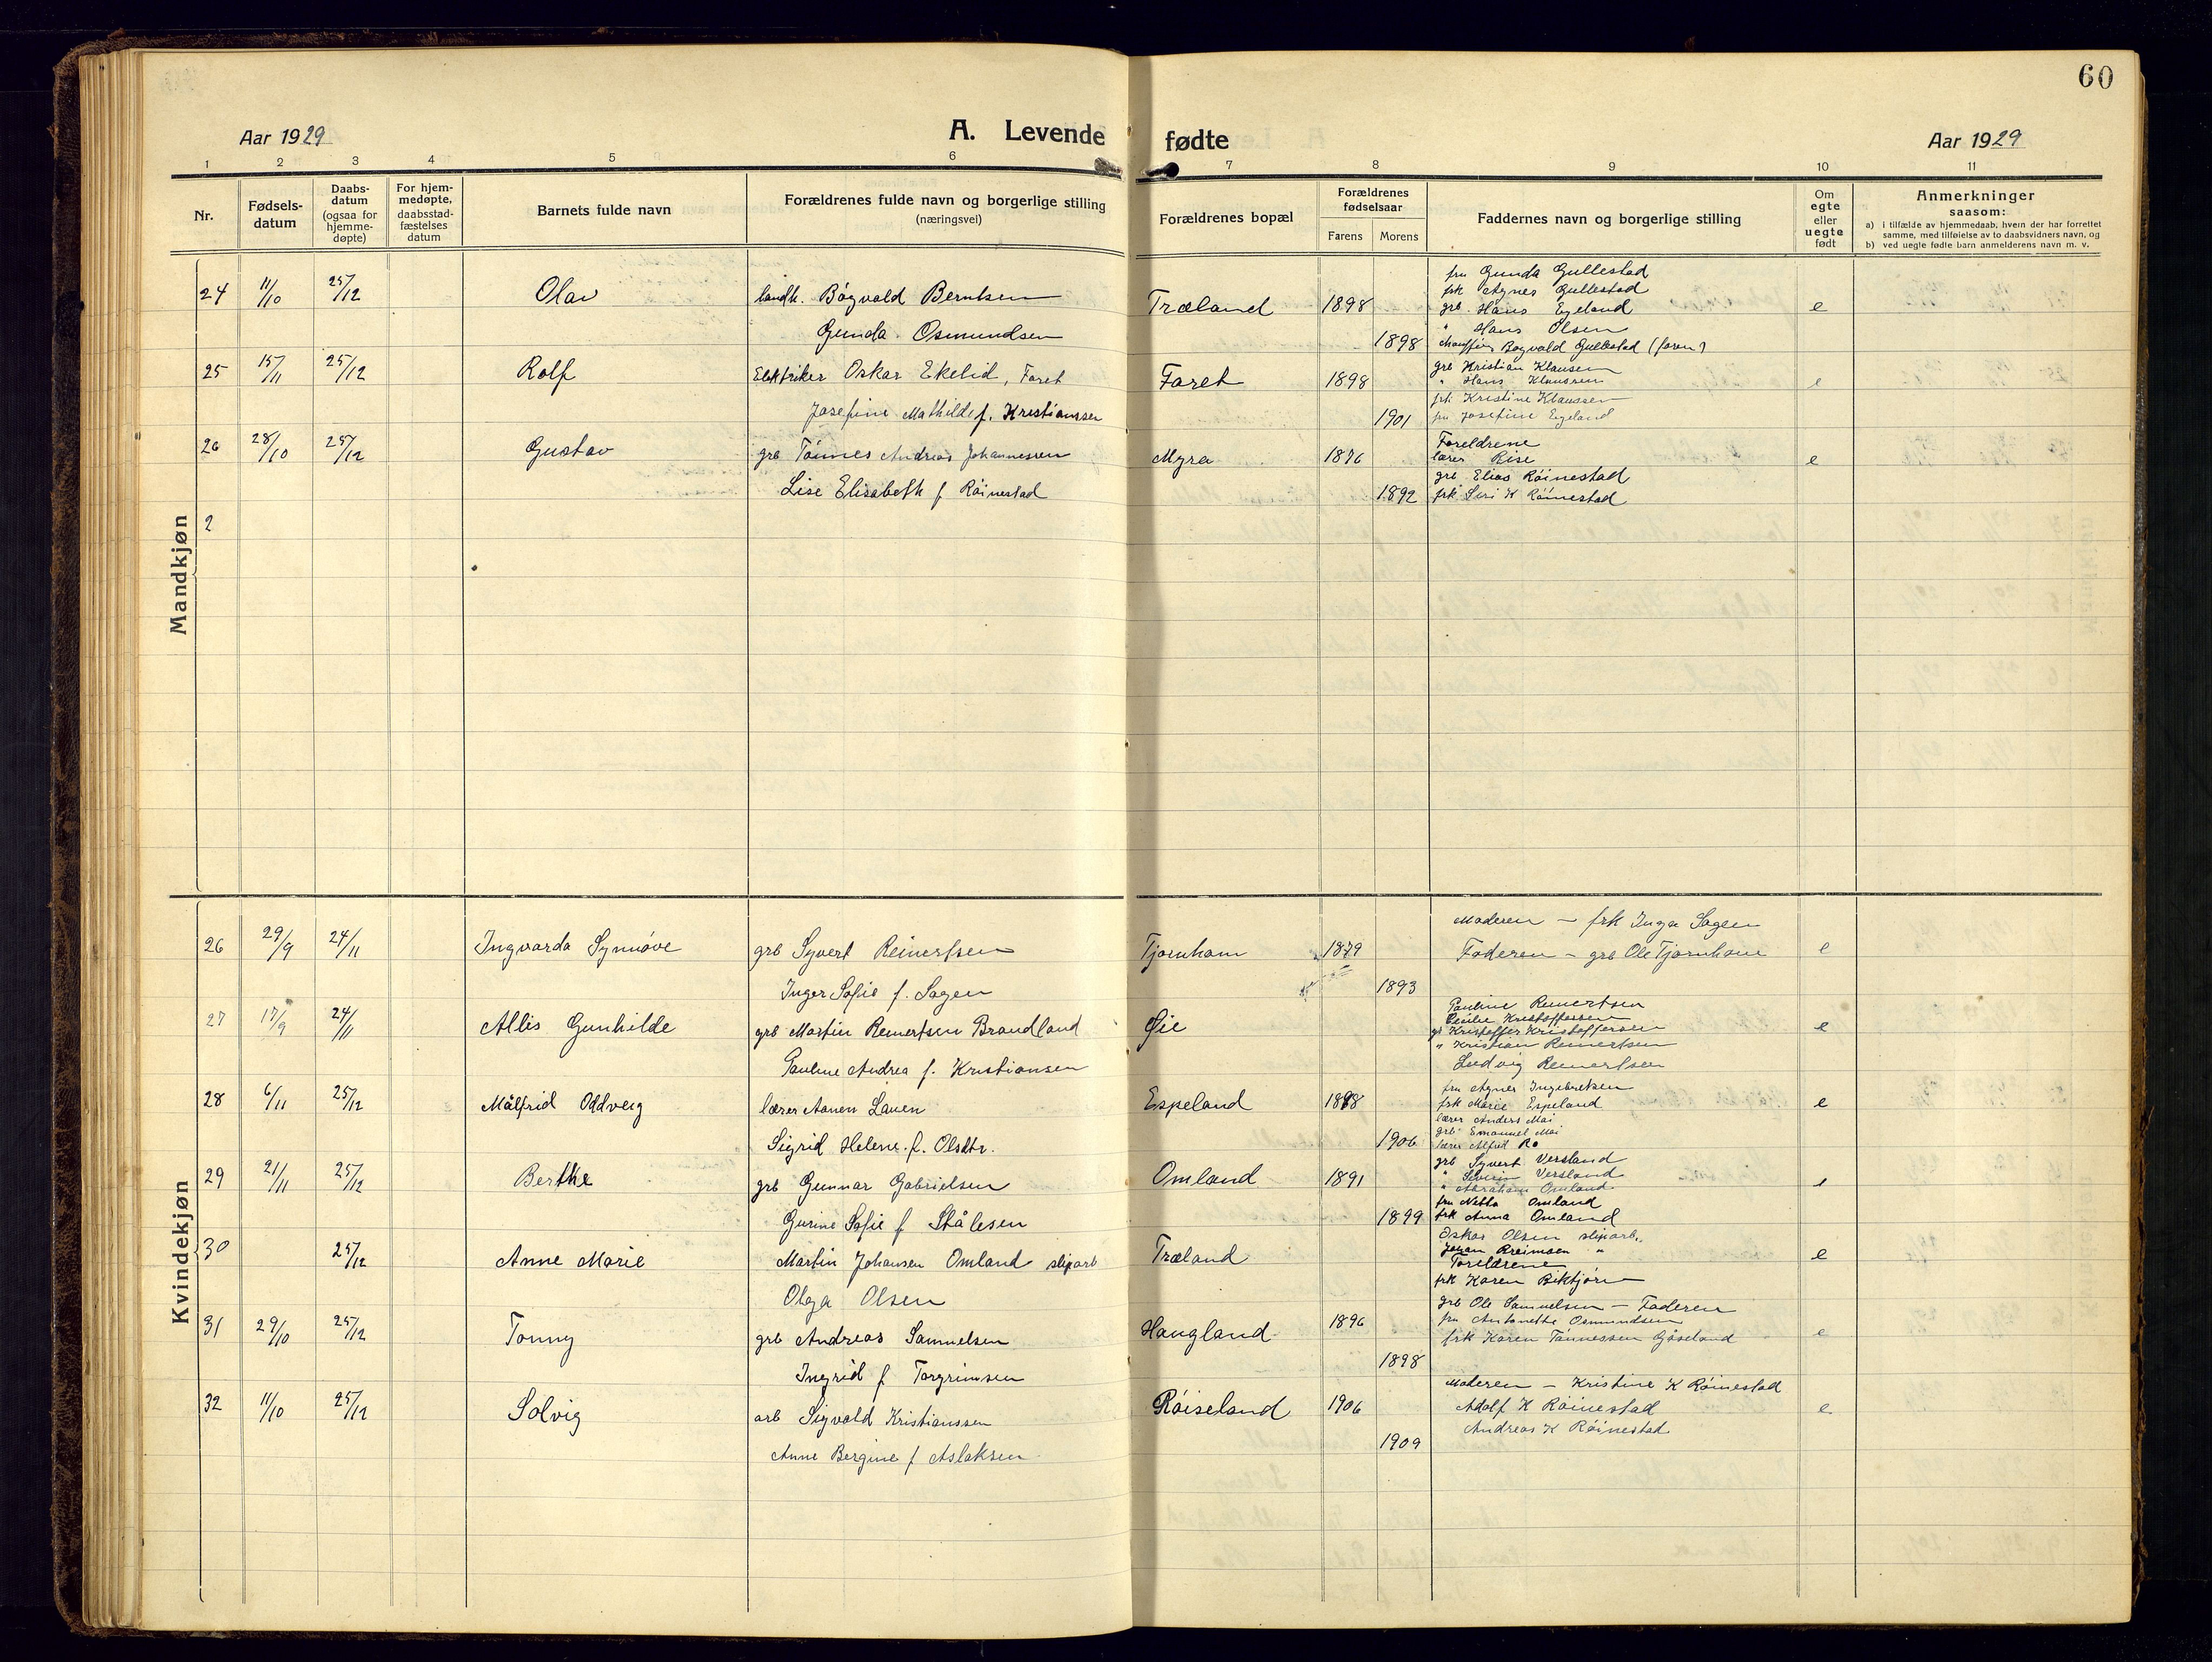 60
Aar 1929
A. Levende fødte
Aar 1929
1 2 3 4 5 6 7 8 9 10 11
Nr.
Fødsels-
datum
Daabs-
datum
(ogsaa for
hjemme-
døpte)
For hjem-
medøpte,
daabsstad-
fæstelses
datum
Barnets fulde navn
Forældrenes fulde navn og borgerlige stilling
(næringsvei)
Forældrenes bopæl
Forældrenes
fødselsaar
Farens Morens
Faddernes navn og borgerlige stilling
Om
egte
eller
uegte
født
Anmerkninger
saasom:
a) i tilfælde av hjemmedaab, hvem der har forrettet
samme, med tilføielse av to daabsvidners navn, og
b) ved uegte fødte barn anmelderens navn m. v.
Mandkjøn
24 11/10 25/12 Olav landh. Bøgvald Berntsen Træland 1898 e
Gunda Osmundsen 1898
fru Gunda Gullestad
frk Agnes Gullestad
grb. Hans Egeland
" Hans Olsen
Bøgvald Gullestad
25 15/11 25/12 Rolf Elektriker Oskar Ekelid, Faret Faret 1898 e
Josefine Mathilde f. Kristianssen 1901
grb Kristian Klausen
" Hans Klaussen
frk Kristine Klaussen
fru Josefine Egeland
26 28/10 25/12 Gustav grb Tønnes Andreas Johannessen Myra 1876 e
Lise Elisabeth f Røinestad 1892
Foreldrene
lærer Rise
grb. Elias Røinestad
frk Siri K Røinestad
2
Kvindekjøn
26 29/9 24/11 Ingvarda Synnøve grb Syvert Reinertsen Tjørnhom 1879 e
Inger Sofie f. Sagen 1893
Moderen – frk Inga Sagen
Faderen – grb Ole Tjørnhom
27 17/9 24/11 Allis Gunhilde grb Martin Reinertsen Brandland Øie e
Pauline Andrea f. Kristiansen
Pauline Reinertsen
Cecilie Kristoffersen
gr Kristoffer Kristoffersen
" Kristian Reinertsen
Ludvig Reinertsen
28 6/11 25/12 Målfrid Oddveig lærer Aanen Lauen Espeland 1898 e
Sigrid Helene f. Olsdtr. 1906
fru Agnes Ingebretsen
frk Marie Espeland
lærer Anders Moi
grb Emanuel Moi
lærer Alfred Ro
29 21/11 25/12 Berthe grb Gunnar Gabrielsen Omland 1891 e
Gurine Sofie f Stålesen 1899
grb Syvert Versland
" Severin Versland
" Abraham Omland
fru Netta Omland
frk Anna Omland
30 25/12 Anne Marie Martin Johansen Omland sliparb Træland e
Olga Olsen
Oskar Olsen sliparb.
Johan Breimoen "
Foreldrene
frk Karen Birkjørn
31 29/10 25/12 Tonny grb Andreas Samuelsen Haugland 1896 e
Ingrid f Torgrimsen 1898
grb Ole Samuelsen – Faderen
fru Antonette Osmundsen
frk Karen Tønnessen Gjøseland
32 11/10 25/12 Solvig arb Sigvald Kristianssen Røiseland 1906 e
Anne Bergine f Aslaksen 1909
Moderen – Kristine K Røinestad
Adolf K Røinestad
Andreas K Røinestad